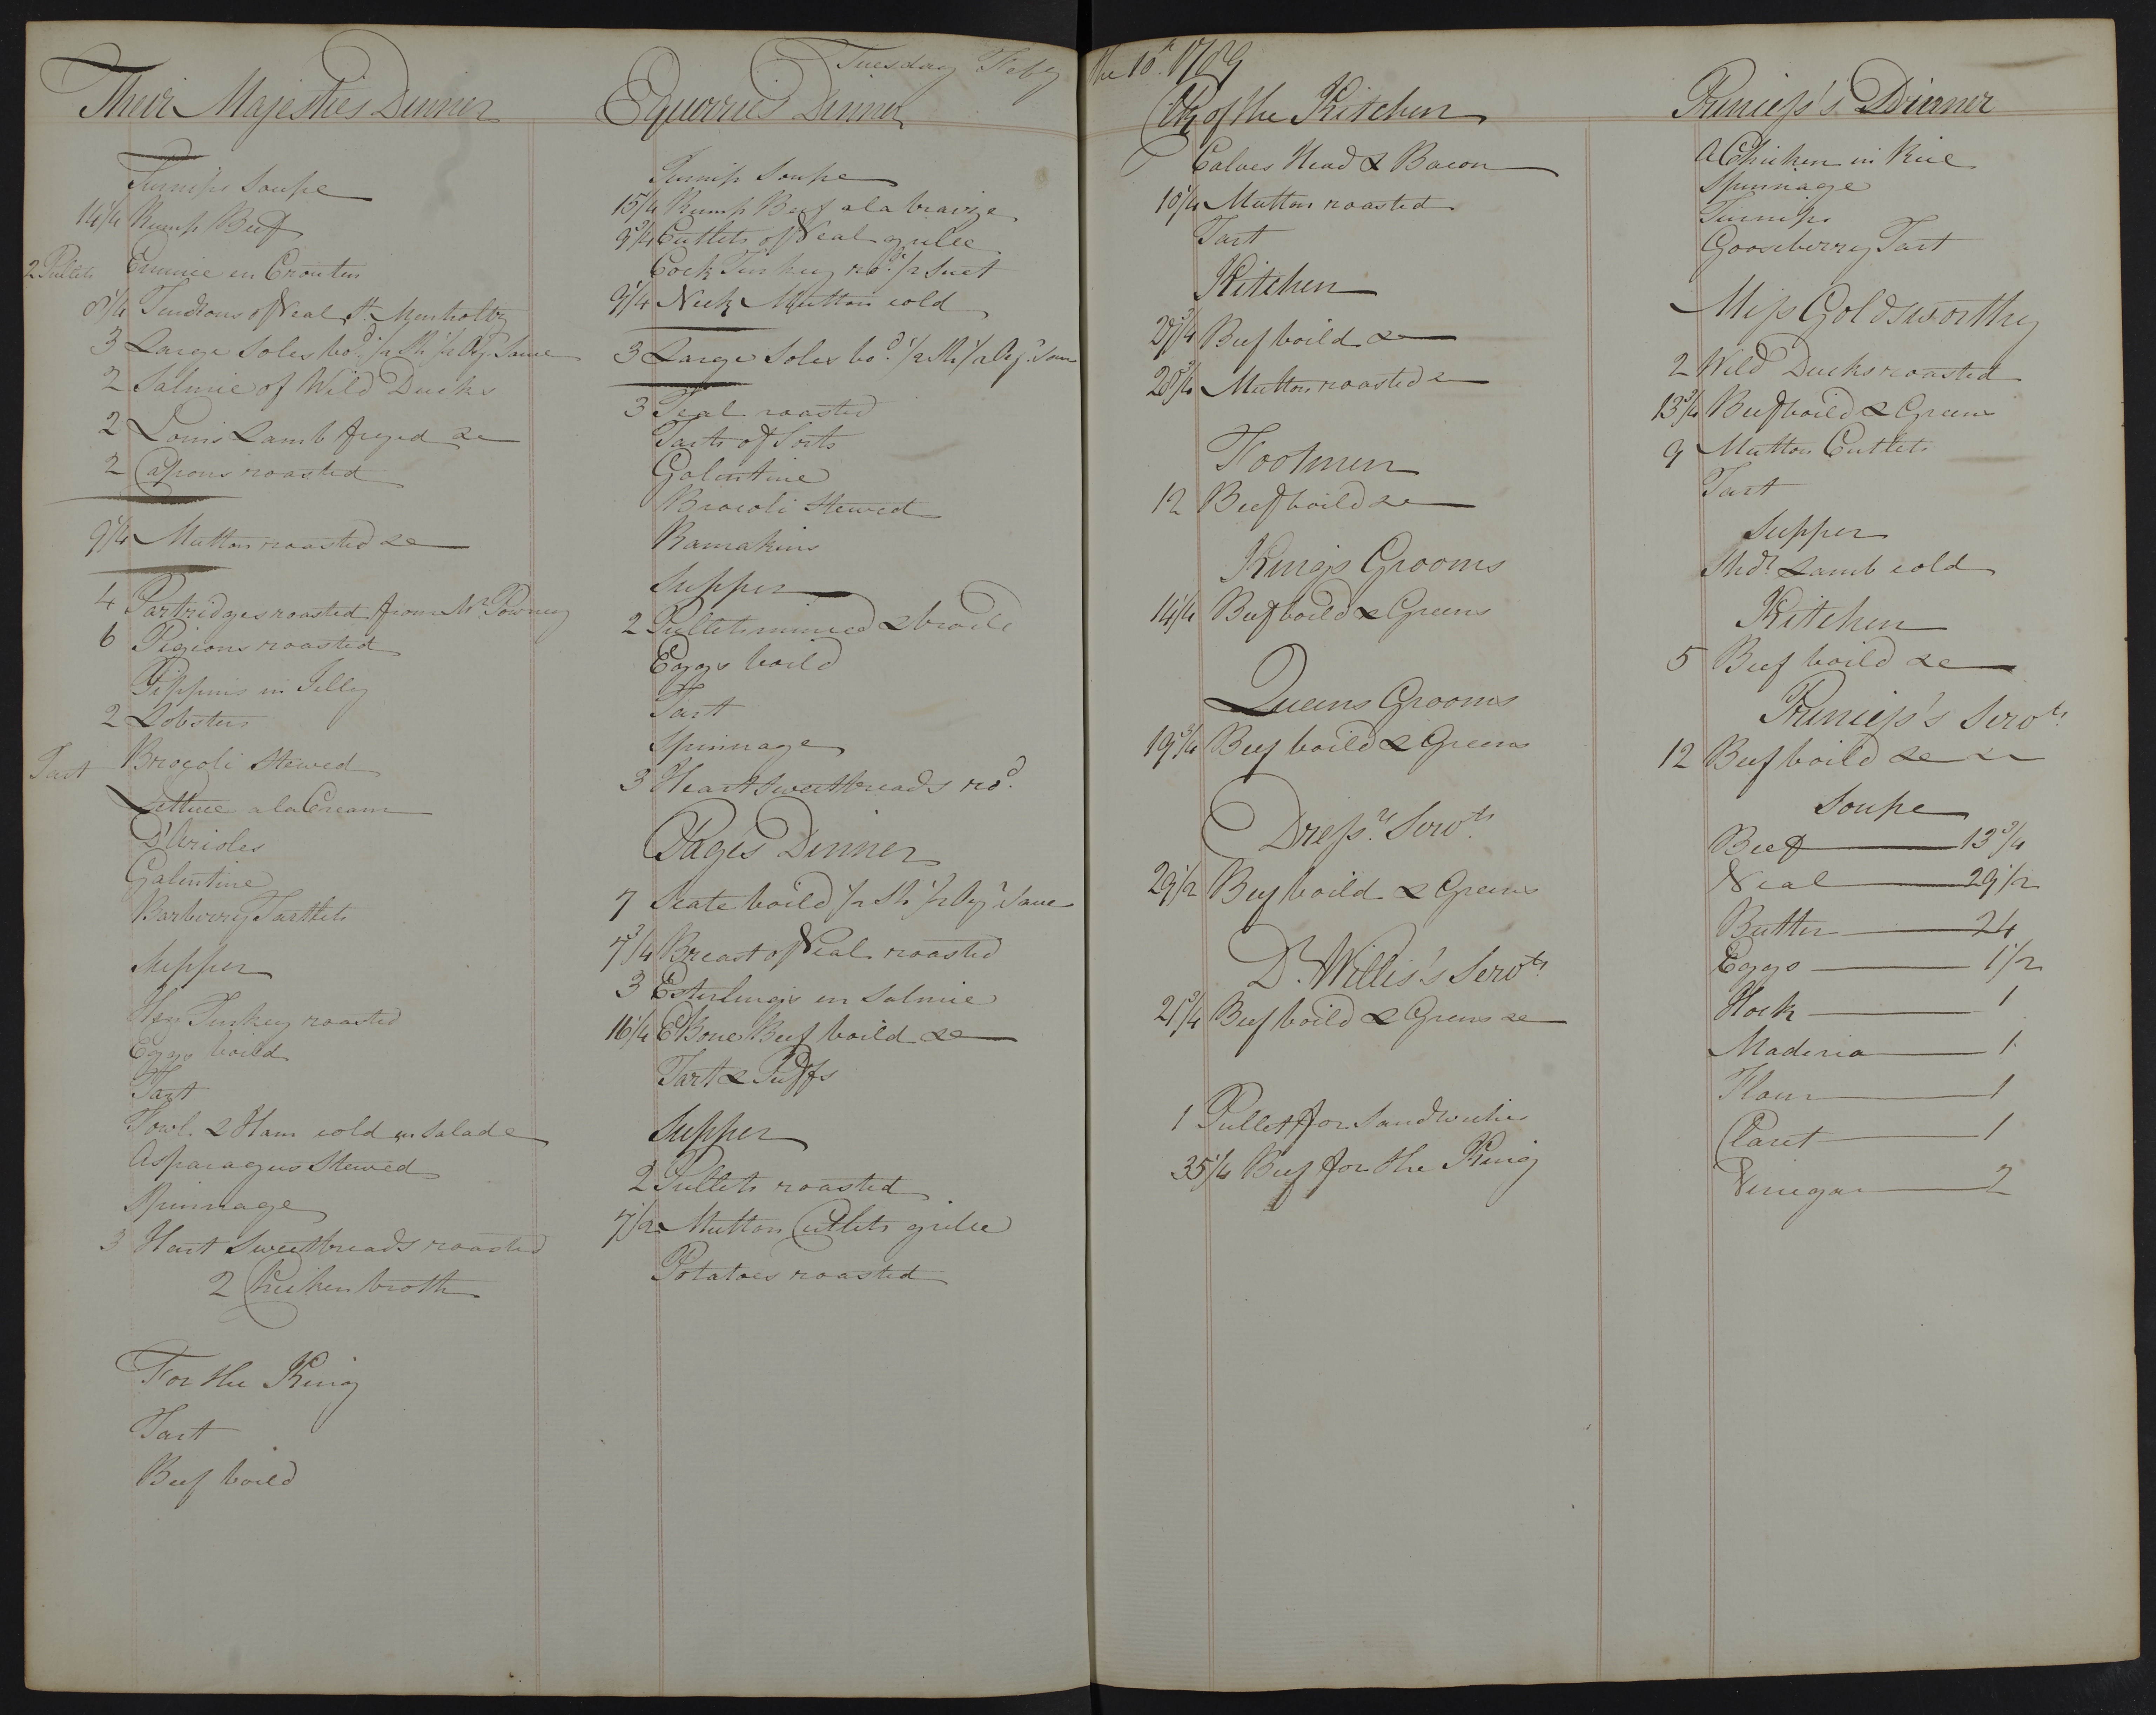 Tuesday Feby the 10th 1789
Their Majesties Dinner
Turnip Soupe
14 1/4 Rump Beef
2 Pullets Emince en Croutin
8 1/4 Tendrons of Veal St. Menholtz
3 Large Soles bod. 1/2 Sh 1/2 Oyr. Sauce
2 Salmie of Wild Ducks
2 Loins Lamb fryed &c
2 Capons roasted
9 1/4 Mutton roasted &c
4 Partridges roasted from Mr. Powney
6 Pigions roasted
Pippins in Jelly
2 Lobsters
Tart Brocoli Stewed
Lettuce a la Cream
D'Arioles
Galentine
Barberry Tartlets
Supper
Hen Turkey roasted
Eggs boild
Tart
Fowl & Ham cold en Salade
Asparagus Stewed
Spinnage
3 Hart Sweetbreads roasted
2 Chicken broth
For the King
Tart
Beef boild
Equerries Dinner
Turnip Soupe
15 1/4 Rump Beef a la braize
9 3/4 Cutlets of Veal grilee
Cock Turkey rod. 1/2 Suet
9 1/4 Neck Mutton cold
3 Large Soles bod. 1/2 Sh 1/2 Oyr.
3 Teal roasted
Tarts of Sorts
Galentine
Brocoli Stewed
Ramakins
Supper
2 Pullets minced & broild
Eggs boild
Tart
Spinnage
3 Heart Sweetbreads rod.
Pages Dinner
7 Scate boild 1/2 Sh 1/2 Oyr Sauce
7 3/4 Breast of Veal roasted
3 Esterlings en Salmie
16 1/4 EBone Beef boild &c
Tart & Puffs
Supper
2 Pullets roasted
7 1/2 Mutton Cutlets grilee
Potatoes roasted
Clk of the Kitchen
Calves Head & Bacon
10 1/4 Mutton roasted
Tart
Kitchen
27 3/4 Beef boild &c
28 3/4 Mutton roasted &c
Footmen
12 Beef boild &c
Kings Grooms
14 1/4 Beef boild & Greens
Queens Grooms
19 3/4 Beef boild & Greens
Dressrs. Servts.
29 1/2 Beef boild & Greens
Dr. Willis's Servts.
21 3/4 Beef boild & Greens &c
1 Pullet for Sandwiches
35 1/4 Beef for the King
Princess's Dinner
A Chicken in Rice
Spinnage
Turnips
Gooseberry Tart
Miss Goldsworthy
2 Wild Ducks roasted
13 3/4 Beef boild & Greens
9 Mutton Cutlets
Tart
Supper
Shdr. Lamb cold
Kitchen
5 Beef boild &c
Princess's Servts.
12 Beef boild &c
Soupe
Beef 13 3/4
Veal 29 1/2
Butter 24
Eggs 1 1/2
Hock 1
Maderia 1
Flour 1
Claret 1
Vinegar 2